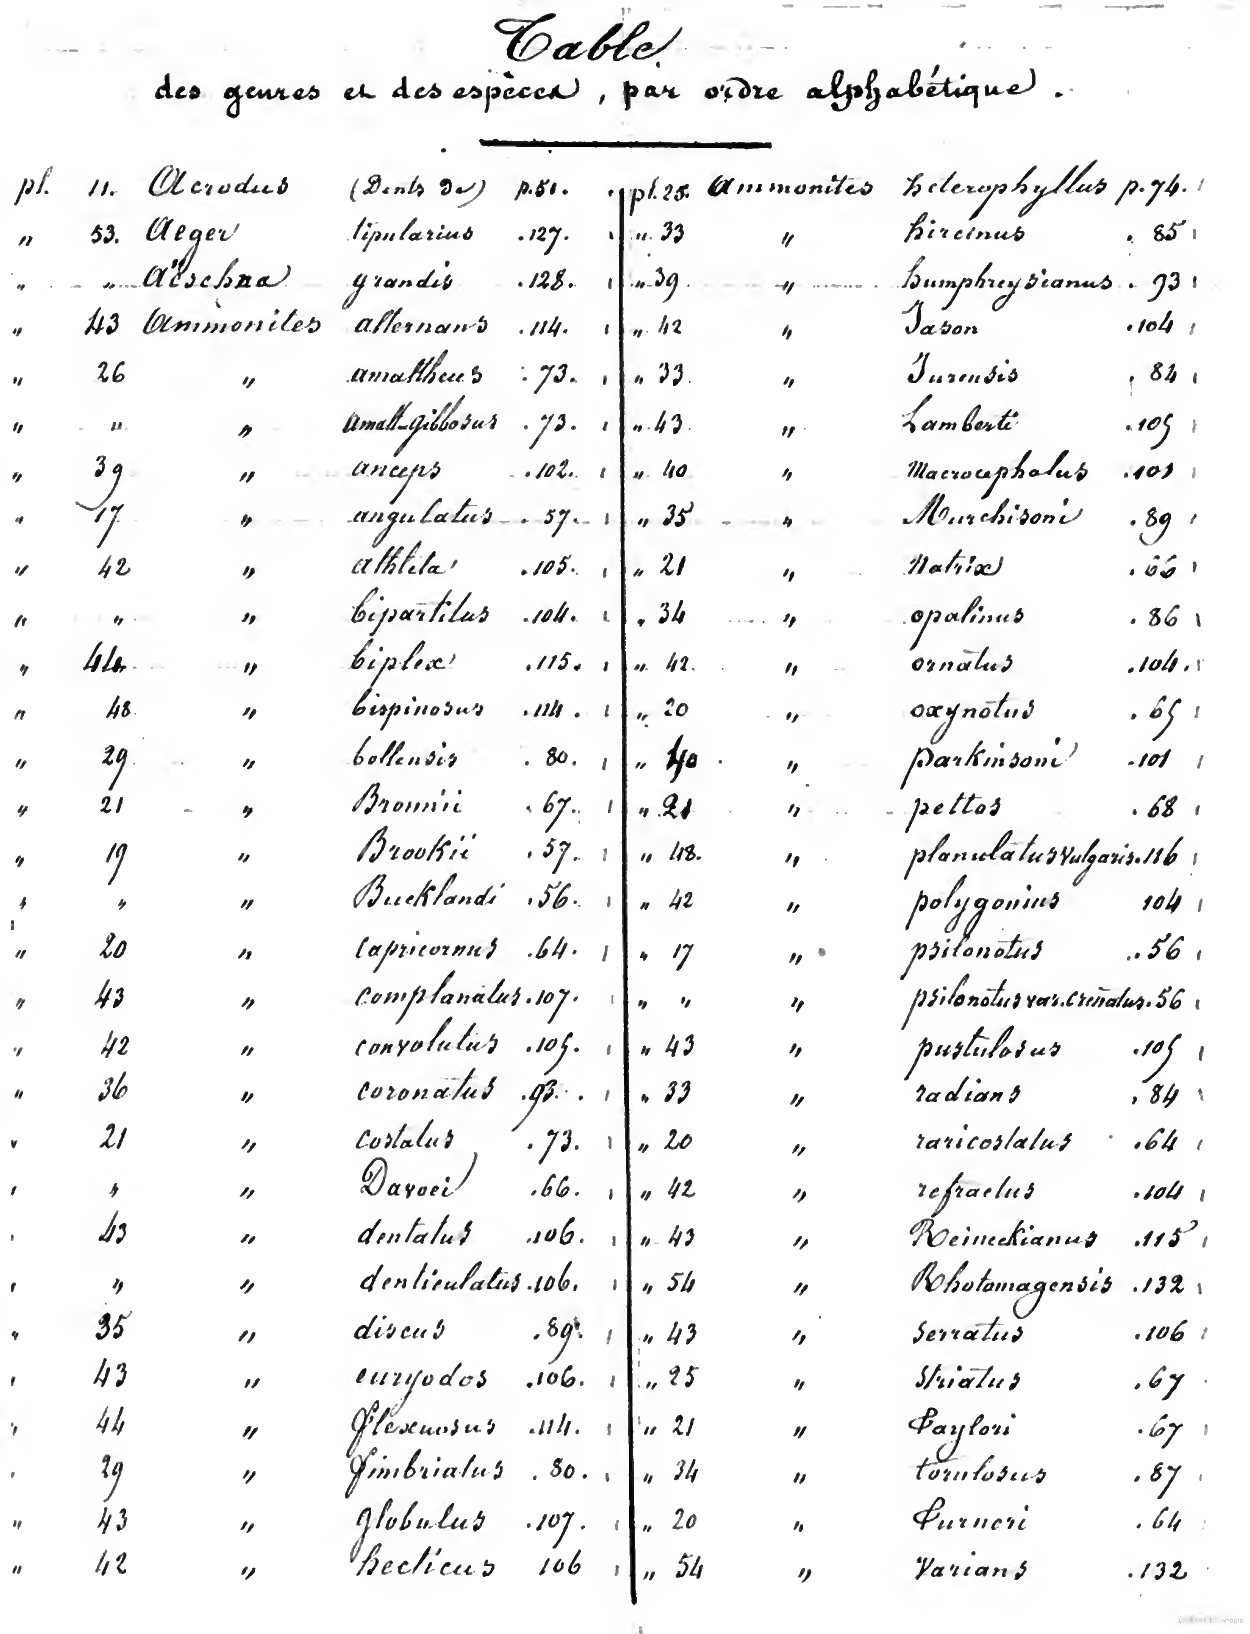 Table
des genres et des espèces, par ordre alphabétique.
pl. 11. Acrodus (Dents de) p. 51.
" 53. Aeger tipularius . 127.
" " Aëschna grandis . 128.
" 43 Ammonites alternans . 114.
" 26 " amaltheus . 73.
" " " amalt-gibbosus . 73.
" 39 " anceps . 102.
" 17 " angulatus . 57.
" 42 " athleta . 105.
" " " bipartitus . 104.
" 44 " biplex . 115.
" 48 " bispinosus . 114.
" 29 " bollensis . 80.
" 21 " Bronnii . 67.
" 19 " Brookii . 57.
" " " Bucklandi . 56.
" 20 " capricornus . 64.
" 43 " complanatus . 107.
" 42 " convolutus . 105.
" 36 " coronatus . 93.
" 21 " costatus . 73.
" " " Davoei . 66.
" 43 " dentatus . 106.
" " " denticulatus . 106.
" 35 " discus . 89.
" 43 " euryodos . 106.
" 44 " flexuosus . 114.
" 29 " fimbriatus . 80.
" 43 " globulus . 107.
" 42 " hecticus 106
pl. 25. Ammonites heterophyllus p. 74.
" 33 " hircinus . 85
" 39 " humphreysianus . 93
" 42 " Jason . 104
" 33 " Jurensis . 84
" 43 " Lamberti . 105
" 40 " Macrocephalus . 101
" 35 " Murchisoni . 89
" 21 " Natrix . 66
" 34 " opalinus . 86
" 42 " ornatus . 104.
" 20 " oxynotus . 65
" 40 " Parkinsoni . 101
" 21 " pettos . 68
" 48. " planulatus vulgaris . 116
" 42 " polygonius 104
" 17 " psilonotus . 56
" " " psilonotus var. crenatus . 56
" 43 " pustulosus . 105
" 33 " radians . 84
" 20 " raricostatus . 64
" 42 " refractus . 104
" 43 " Reineckianus . 115
" 54 " Rhotomagensis . 132
" 43 " serratus . 106
" 25 " Striatus . 67
" 21 " Taylori . 67
" 34 " torulosus . 87
" 20 " Turneri . 64
" 54 " Varians . 132